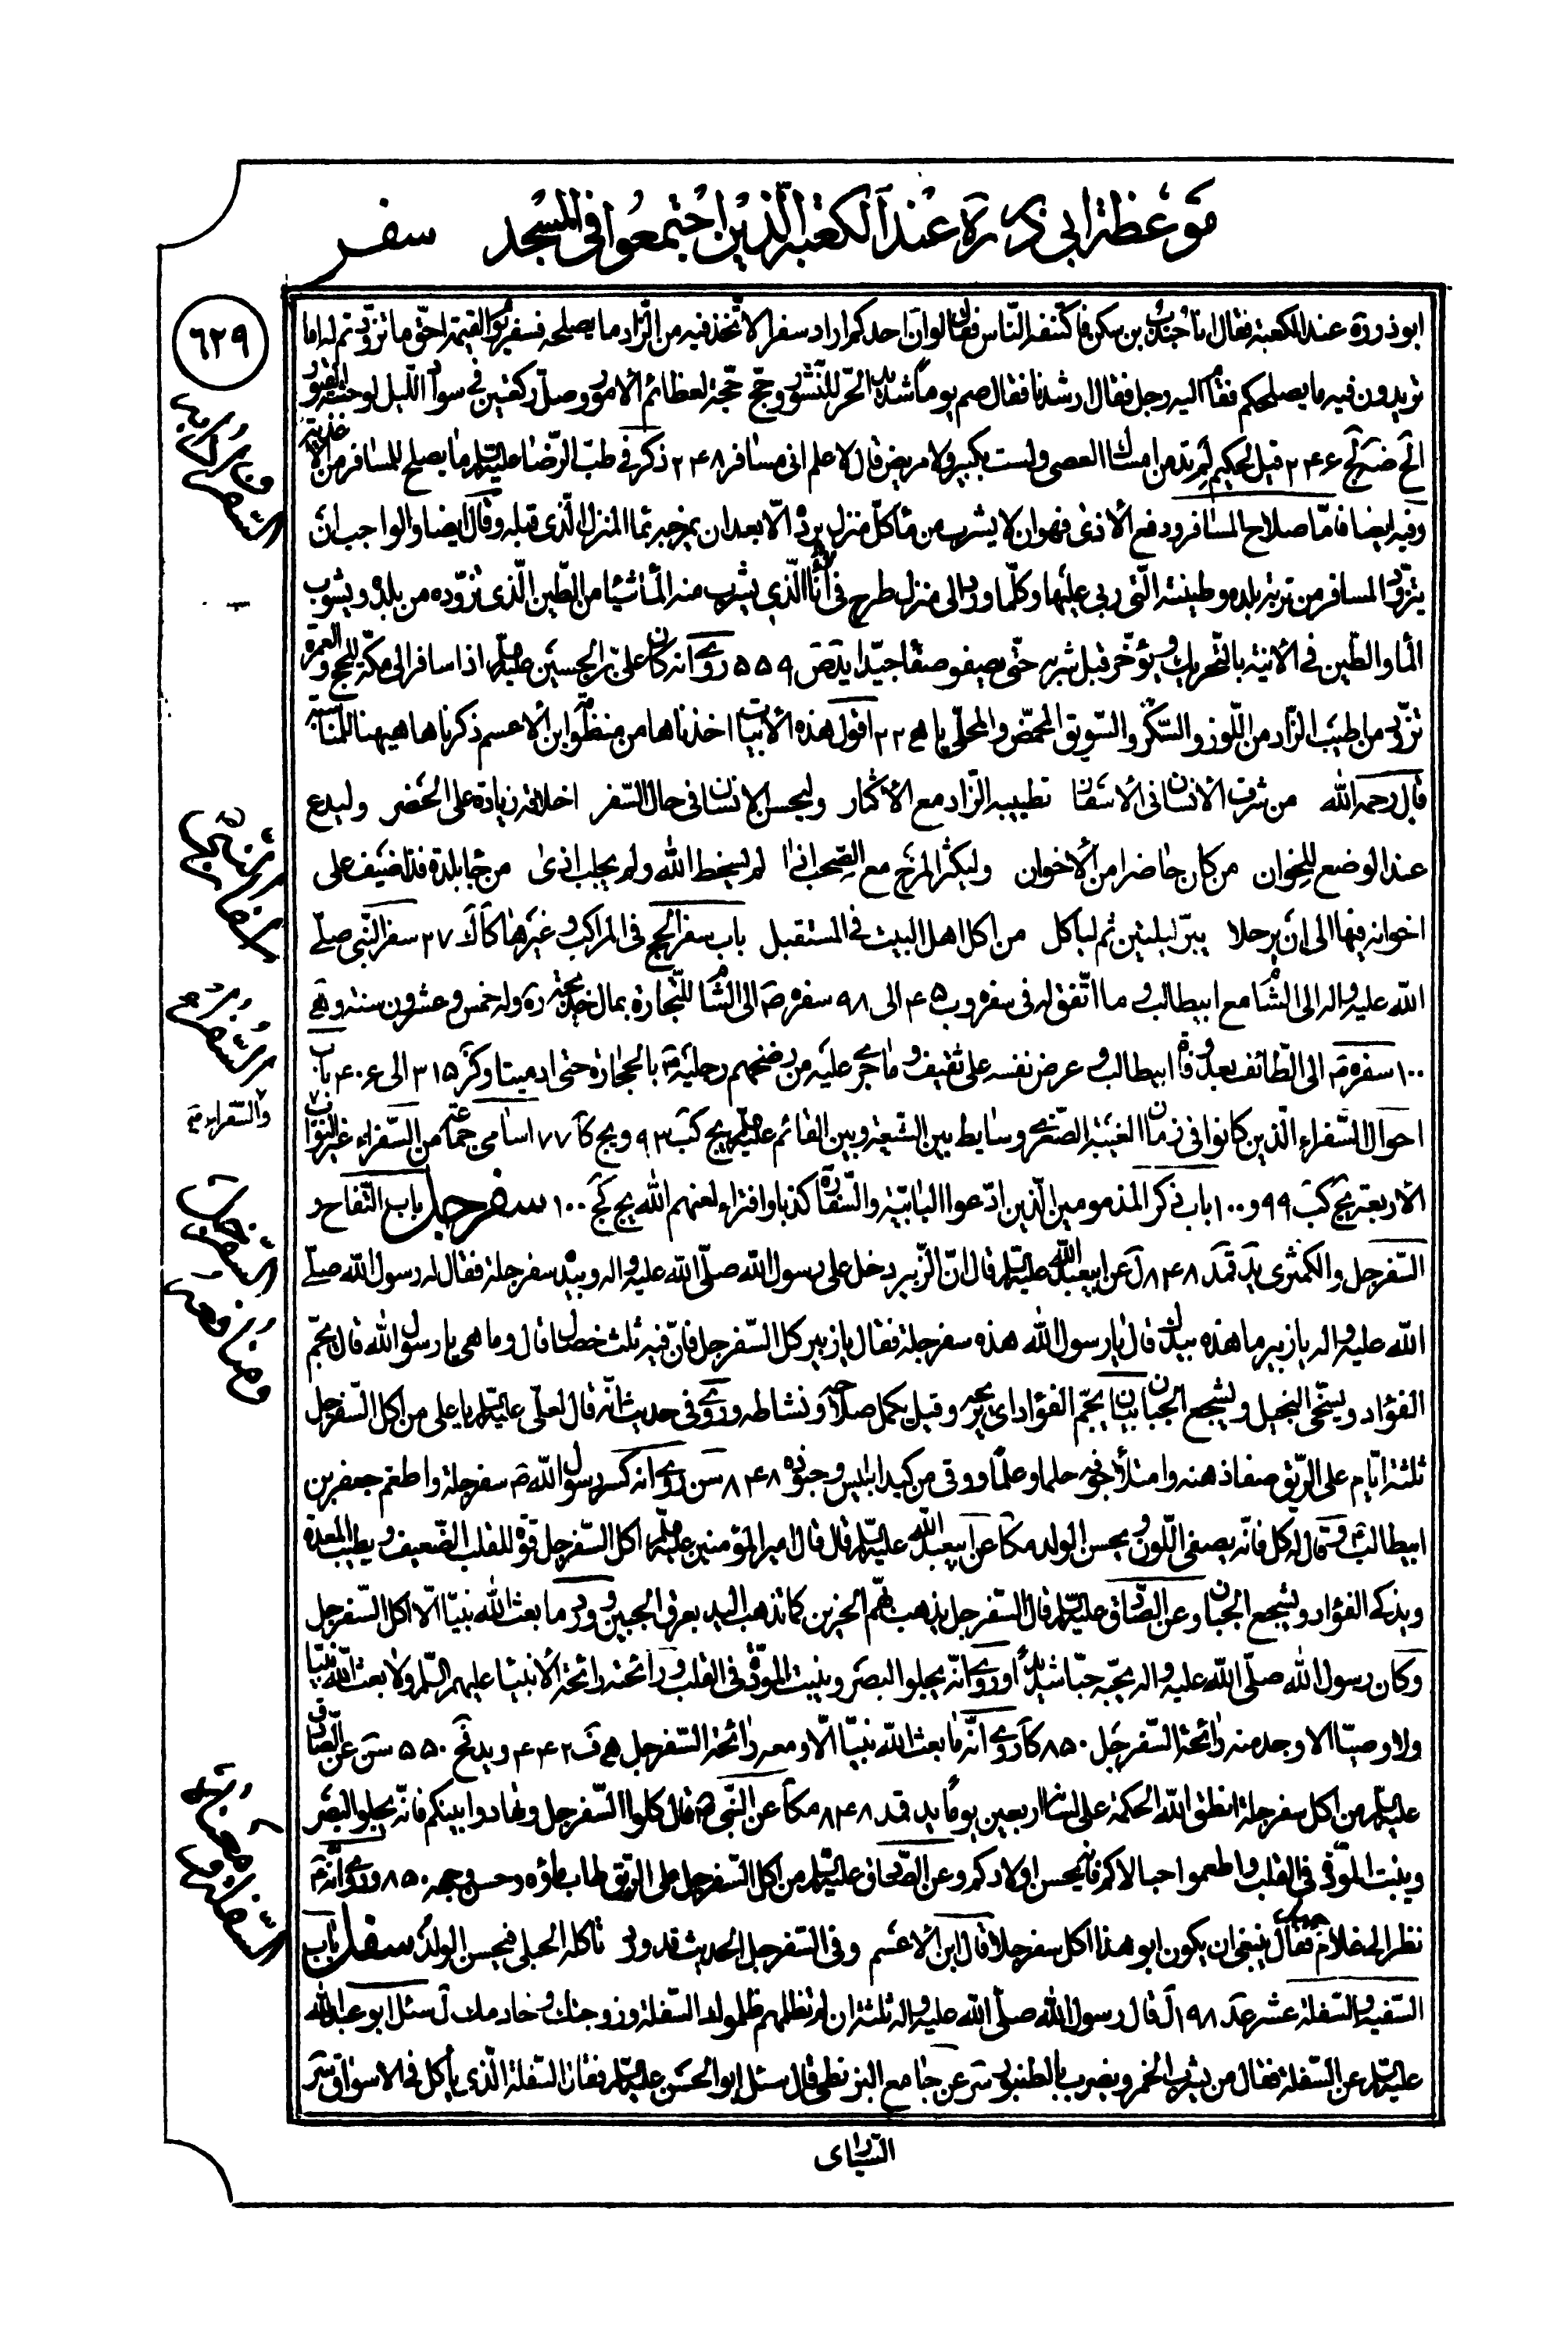 موعظة ابي ذر ره عند الكعبة الذين اجتمعوا في المسجد سفر
٦٢٩
ابوذر ره عند الكعبة فقال انا جندب بن سكن فاكتنفه الناس فقال لو ان احدكم اراد سفرا لاتخذ فيه من الزاد ما يصلحه فسفر يوم القيمة احق ما تزودتم له اما
تريدون فيه ما يصلحكم فقام اليه رجل فقال ارشدنا فقال صم يوما شديد الحر للنشور وحج حجة لعظائم الامور وصل ركعتين في سواد الليل لوحشة القبور
الخ ضه لج ٢٤٦ قيل لحكيم لم تدمن امساك العصى ولست بكبير ولا مريض قال لاعلم انى مسافر ٢٤٨ ذكر في طب الرضا عليه السلم ما يصلح للمسافر من الاغذية
وفيه ايضا فاما صلاح المسافر ودفع الاذى فهو ان لا يشرب من ماء كل منزل يرده الا بعد ان يمزجه بماء المنزل الذى قبله وقال ايضا والواجب ان
يتزود المسافر من تربة بلده وطينته التى ربي عليها وكلما ورد الى منزل طرح في انائه الذي يشرب منه الماء شيئا من الطين الذى تزوده من بلده ويشوب
الماء والطين في الانية بالتحريك ويؤخر قبل شربه حتى يصفو صفاء جيدا يد نص ٥٥٩ روى انه كان على بن الحسين عليه السلم اذا سافر الى مكة للحج والعمرة
تزود من اطيب الزاد من اللوز والسكر والسويق المحمض والمحلى يا هج ٢٢ اقول هذه الابيات اخذناها من منظومة ابن الاعسم ذكرناها هيهنا للمناسبة
قال رحمه الله من شرف الانسان في الاسفار تطييبه الزاد مع الاكثار وليحسن الانسان في حال السفر اخلاقه زيادة على الحضر وليدع
عند الوضع للخوان من كان حاضرا من الاخوان وليكثر المزح مع الصحب اذا لم يسخط الله ولم يجلب اذى من جا بلدة فذا ضيف على
اخوانه فيها الى ان يرحلا يبر ليلتين ثم ليأكل من اكل اهل البيت في المستقبل باب سفر الحج في المراكب وغيرها كا كا ٢٧ سفر النبي صلى
الله عليه واله الى الشام مع ابيطالب وما اتفق له في سفره و ب ٤٥ الى ٩٨ سفره ص الى الشام للتجارة بمال خديجة ره وله خمس وعشرون سنة و هـ
١٠٠ سفره ص الى الطائف بعد وفاة ابيطالب و عرض نفسه على ثقيف وما جرى عليه من رضخهم رجليه ص بالحجارة حتى ادميتا وكر ٣١٥ الى ٤٠٦ باب
احوال السفراء الذين كانوا في زمان الغيبة الصغرى وسايط بين الشيعة وبين القائم عليه السلم يج كب ٩٣ ويج كا ٧٧ اسامى جماعة من السفراء غير النواب
الاربعة يج كب ٩٩ و ١٠٠ باب ذكر المذمومين الذين ادعوا البابية والسفارة كذبا وافتراء لعنهم الله يج كج ١٠٠ سفرجل باب التفاح و
السفرجل والكمثرى يد قمد ٨٤٨ ل عن ابيعبد الله عليه السلم قال ان الزبير دخل على رسول الله صلى الله عليه واله وبيده سفرجلة فقال له رسول الله صلى
الله عليه واله يا زبير ما هذه بيدك قال يا رسول الله هذه سفرجلة فقال يا زبير كل السفرجل فان فيه ثلث خصال قال وما هي يا رسول الله قال يجم
الفؤاد ويسخى البخيل ويشجع الجبان بيان يجم الفؤاد اى يريحه وقيل يكمل صلاحه ونشاطه وروى في حديث انه قال لعلى عليه السلم يا على من اكل السفرجل
ثلثة ايام على الريق صفا ذهنه وامتلأ جوفه حلما وعلما ووقى من كيد ابليس وجنوده ٨٤٨ سن روى انه كسر رسول الله ص سفرجلة واطعم جعفر بن
ابيطالب وقال له كل فانه يصفى اللون ويحسن الولد مكا عن ابيعبد الله عليه السلم قال قال امير المؤمنين عليه السلم اكل السفرجل قوة للقلب الضعيف ويطيب المعدة
ويذكى الفؤاد ويشجع الجبان وعن الصادق عليه السلم قال السفرجل يذهب بهم الحزين كما تذهب اليد بعرق الجبين وورد ما بعث الله نبيا الا اكل السفرجل
وكان رسول الله صلى الله عليه واله يحبه حبا شديدا وروى انه يجلو البصر وينبت المودة في القلب ورائحته رائحة الانبياء عليهم السلم ولا بعث الله نبيا
ولا وصيا الا وجد منه رائحة السفرجل ٨٥٠ كا روى انه ما بعث الله نبيا الا ومعه رائحة السفرجل هـ ف ٤٤٢ ويد نخ ٥٥٠ سن عن الصادق
عليه السلم من اكل سفرجلة انطق الله الحكمة على لسانه اربعين يوما يد قمد ٨٤٨ مكا عن النبي ص قال كلوا السفرجل وتهادوا بينكم فانه يجلو البصر
وينبت المودة في القلب واطعموا حبالاكم فانه يحسن اولادكم وعن الصادق عليه السلم من اكل السفرجل على الريق طاب ماؤه وحسن وجهه ٨٥٠ وروى انه ص
نظر الى غلام جميل فقال ينبغي ان يكون ابو هذا اكل سفرجلا قال ابن الاعسم وفي السفرجل الحديث قد ورد تأكله الحبلى فيحسن الولد سفل باب
السفيه والسفلة عشر عد ١٩٨ ل قال رسول الله صلى الله عليه واله ثلثة ان لم تظلمهم ظلموك السفلة وزوجتك وخادمك ل سئل ابو عبد الله
عليه السلم عن السفلة فقال من يشرب الخمر ويضرب بالطنبور سر عن جامع البزنطى قال سئل ابو الحسن عليه السلم عن السفلة فقال السفلة الذى يأكل في الاسواق سر
السفر
والسفراء
السفرجل
ومنافعه
السيارى